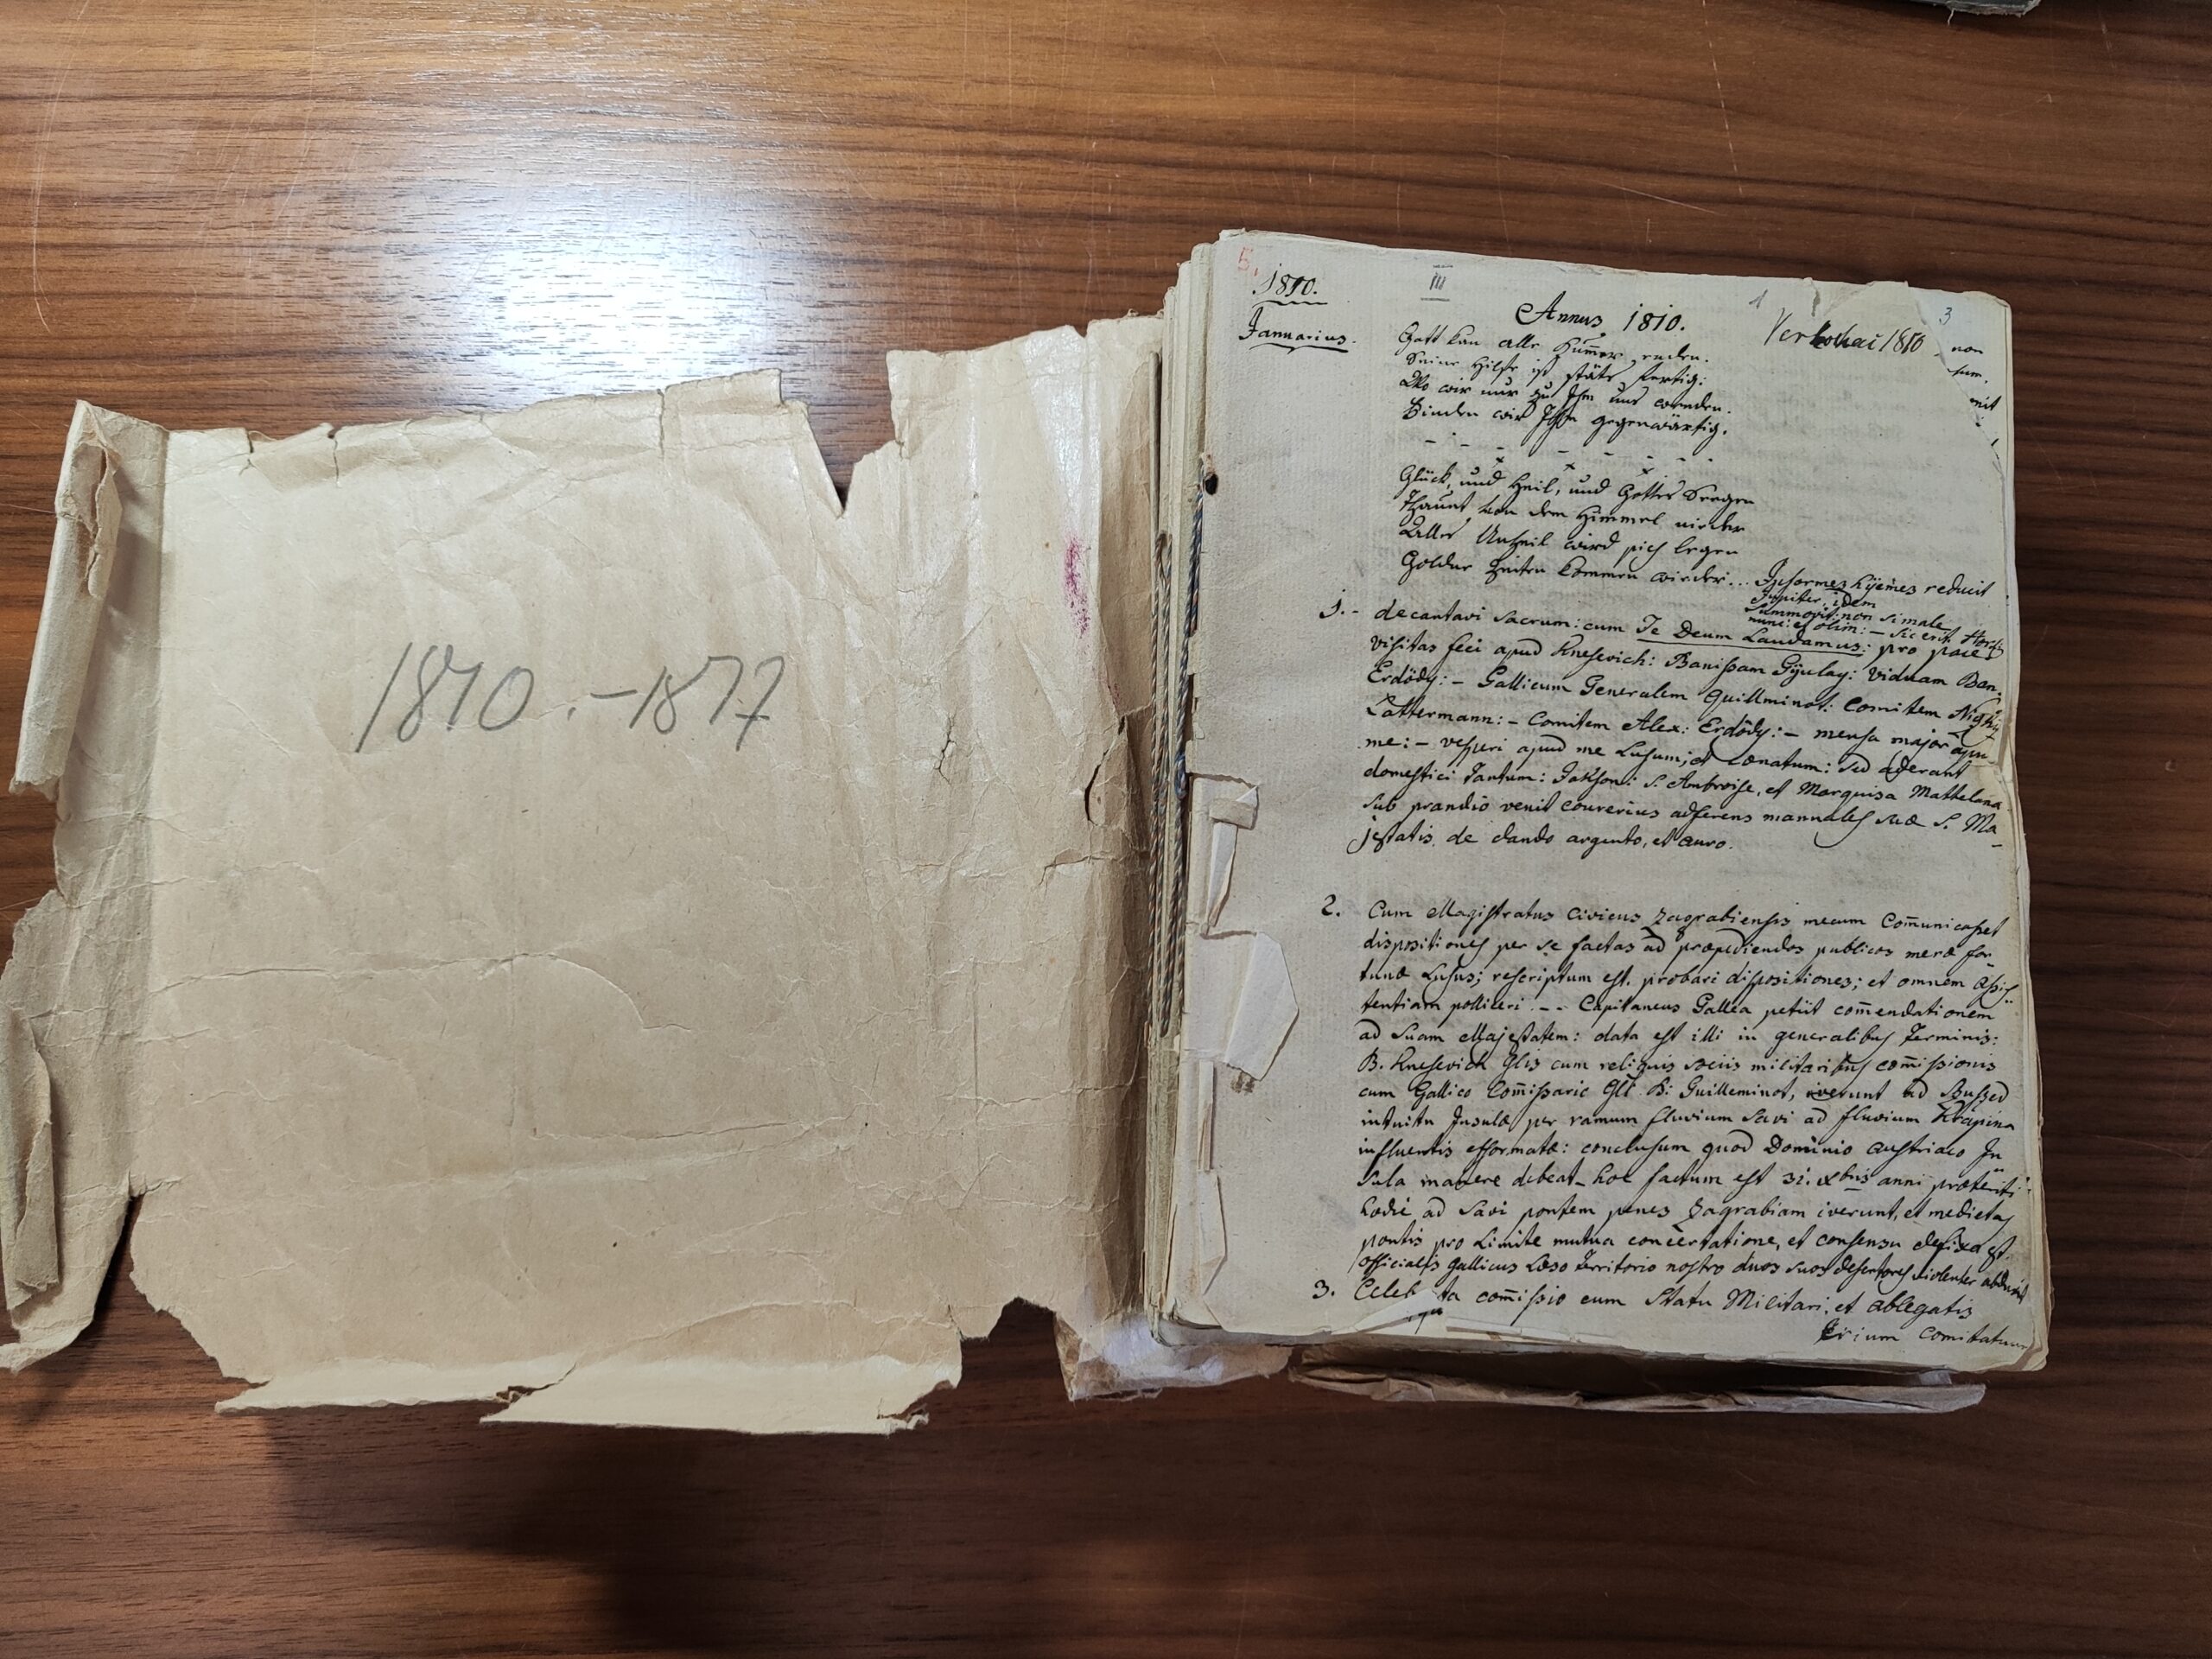 1810. - 1877
5.
1810.
III
1
3
Annus 1810.
Verhovac 1810
non
sum.
Januarius.
Gott kan alle Kum̄er enden.
Seine Hilfe ist stäts fertig:
Wo wir nur zu Ihm uns wenden.
Finden wir Ihn gegenwärtig.
Glück, und Heil, und Gottes Seegen
Thaut von dem Himmel nieder
Alles Unheil wird sich legen
Goldne Zeiten kommen wieder... Informes hyemes reducit
Jupiter: idem
Summovit: non si male
nunc: et olim: - sic erit. Horat
1.- decantavi Sacrum: cum Te Deum Laudamus: pro pace
visitas feci apud Knesevich: Banissam Gyulay: viduam Ban.
Erdödy: - Gallicum Generalem Guillminot: Comitem
Lattermann: - Comitem Alex: Erdödy: - mensa major apu
me: - vesperi apud me Lusum, et Cœnatum: sed aderant
domestici tantum: Jakson: S. Ambroise, et Marquisa Mattelana
sub prandio venit courerius adferens mannales suæ S. Ma
jestatis, de dando argento, et auro.
2. Cum Magistratus Civicus Zagrabiensis mecum Com̄unicasset
dispositiones per se factas ad præpediendos publicos meræ for
tunæ Lusus; rescriptum est. probari dispositiones; et omnem assis
tentiam polliceri. -- Capitaneus Gallea petiit com̄endationem
ad Suam Majestatem: data est illi in generalibus Terminis:
B. Knesevich Glis cum reliquis sociis militaribus com̄issionis
cum Gallico Com̄issario Gli B: Guilleminot, iverunt ad Bussed
intuitu Insulæ per ramum fluvium Savi ad fluvium Krapina
influentis efformatæ: conclusum quod Dominio austriaco In
sula manere debeat - hoc factum est 31. xbris anni præteriti
hodie ad Savi pontem penes Zagrabiam iverunt, et medietas
pontis pro Limite mutua concertatione, et consensu defixa est
officialis gallicus Læso Territorio nostro duos suos desertores violenter abduxit
3. Celeb ta com̄issio cum Statu Militari, et ablegatis
Trium Comitatuum